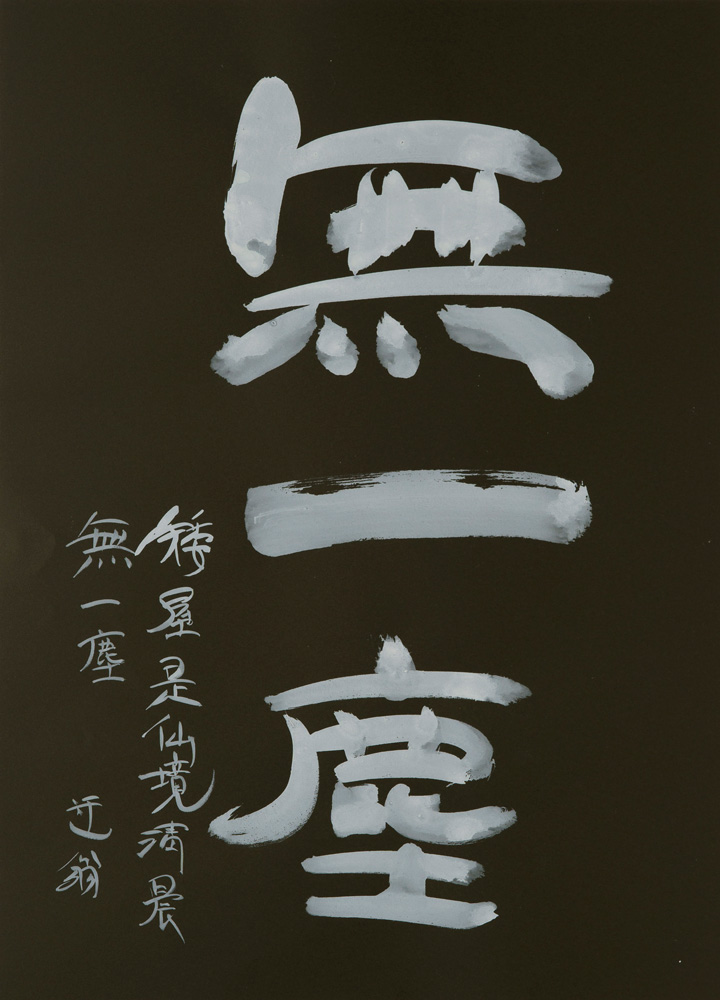 無一塵
矮屋是仙境清晨
無一塵
近翁